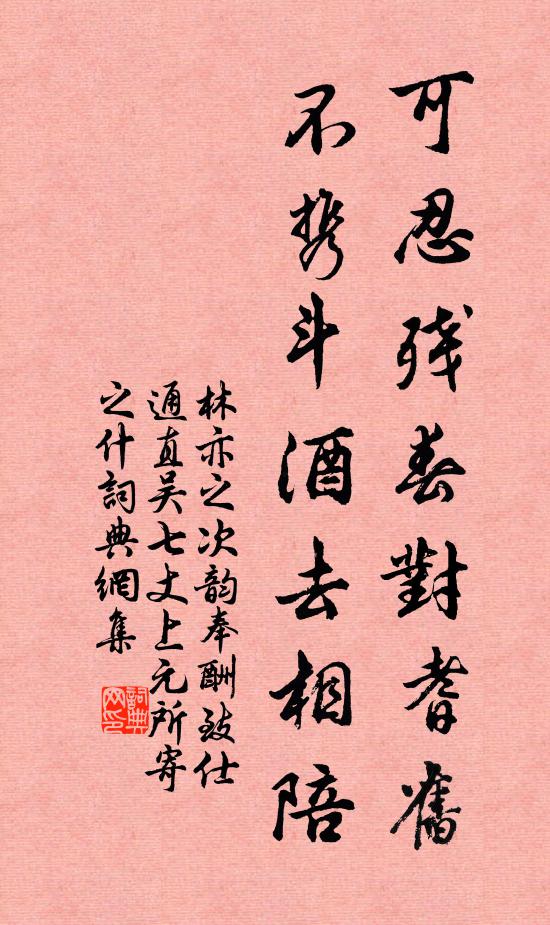 可忍残春對耆舊
不携斗酒去相陪
林亦之次韵奉酬致仕
通直吴七丈上元所寄
之什詞典網集
詞典網印